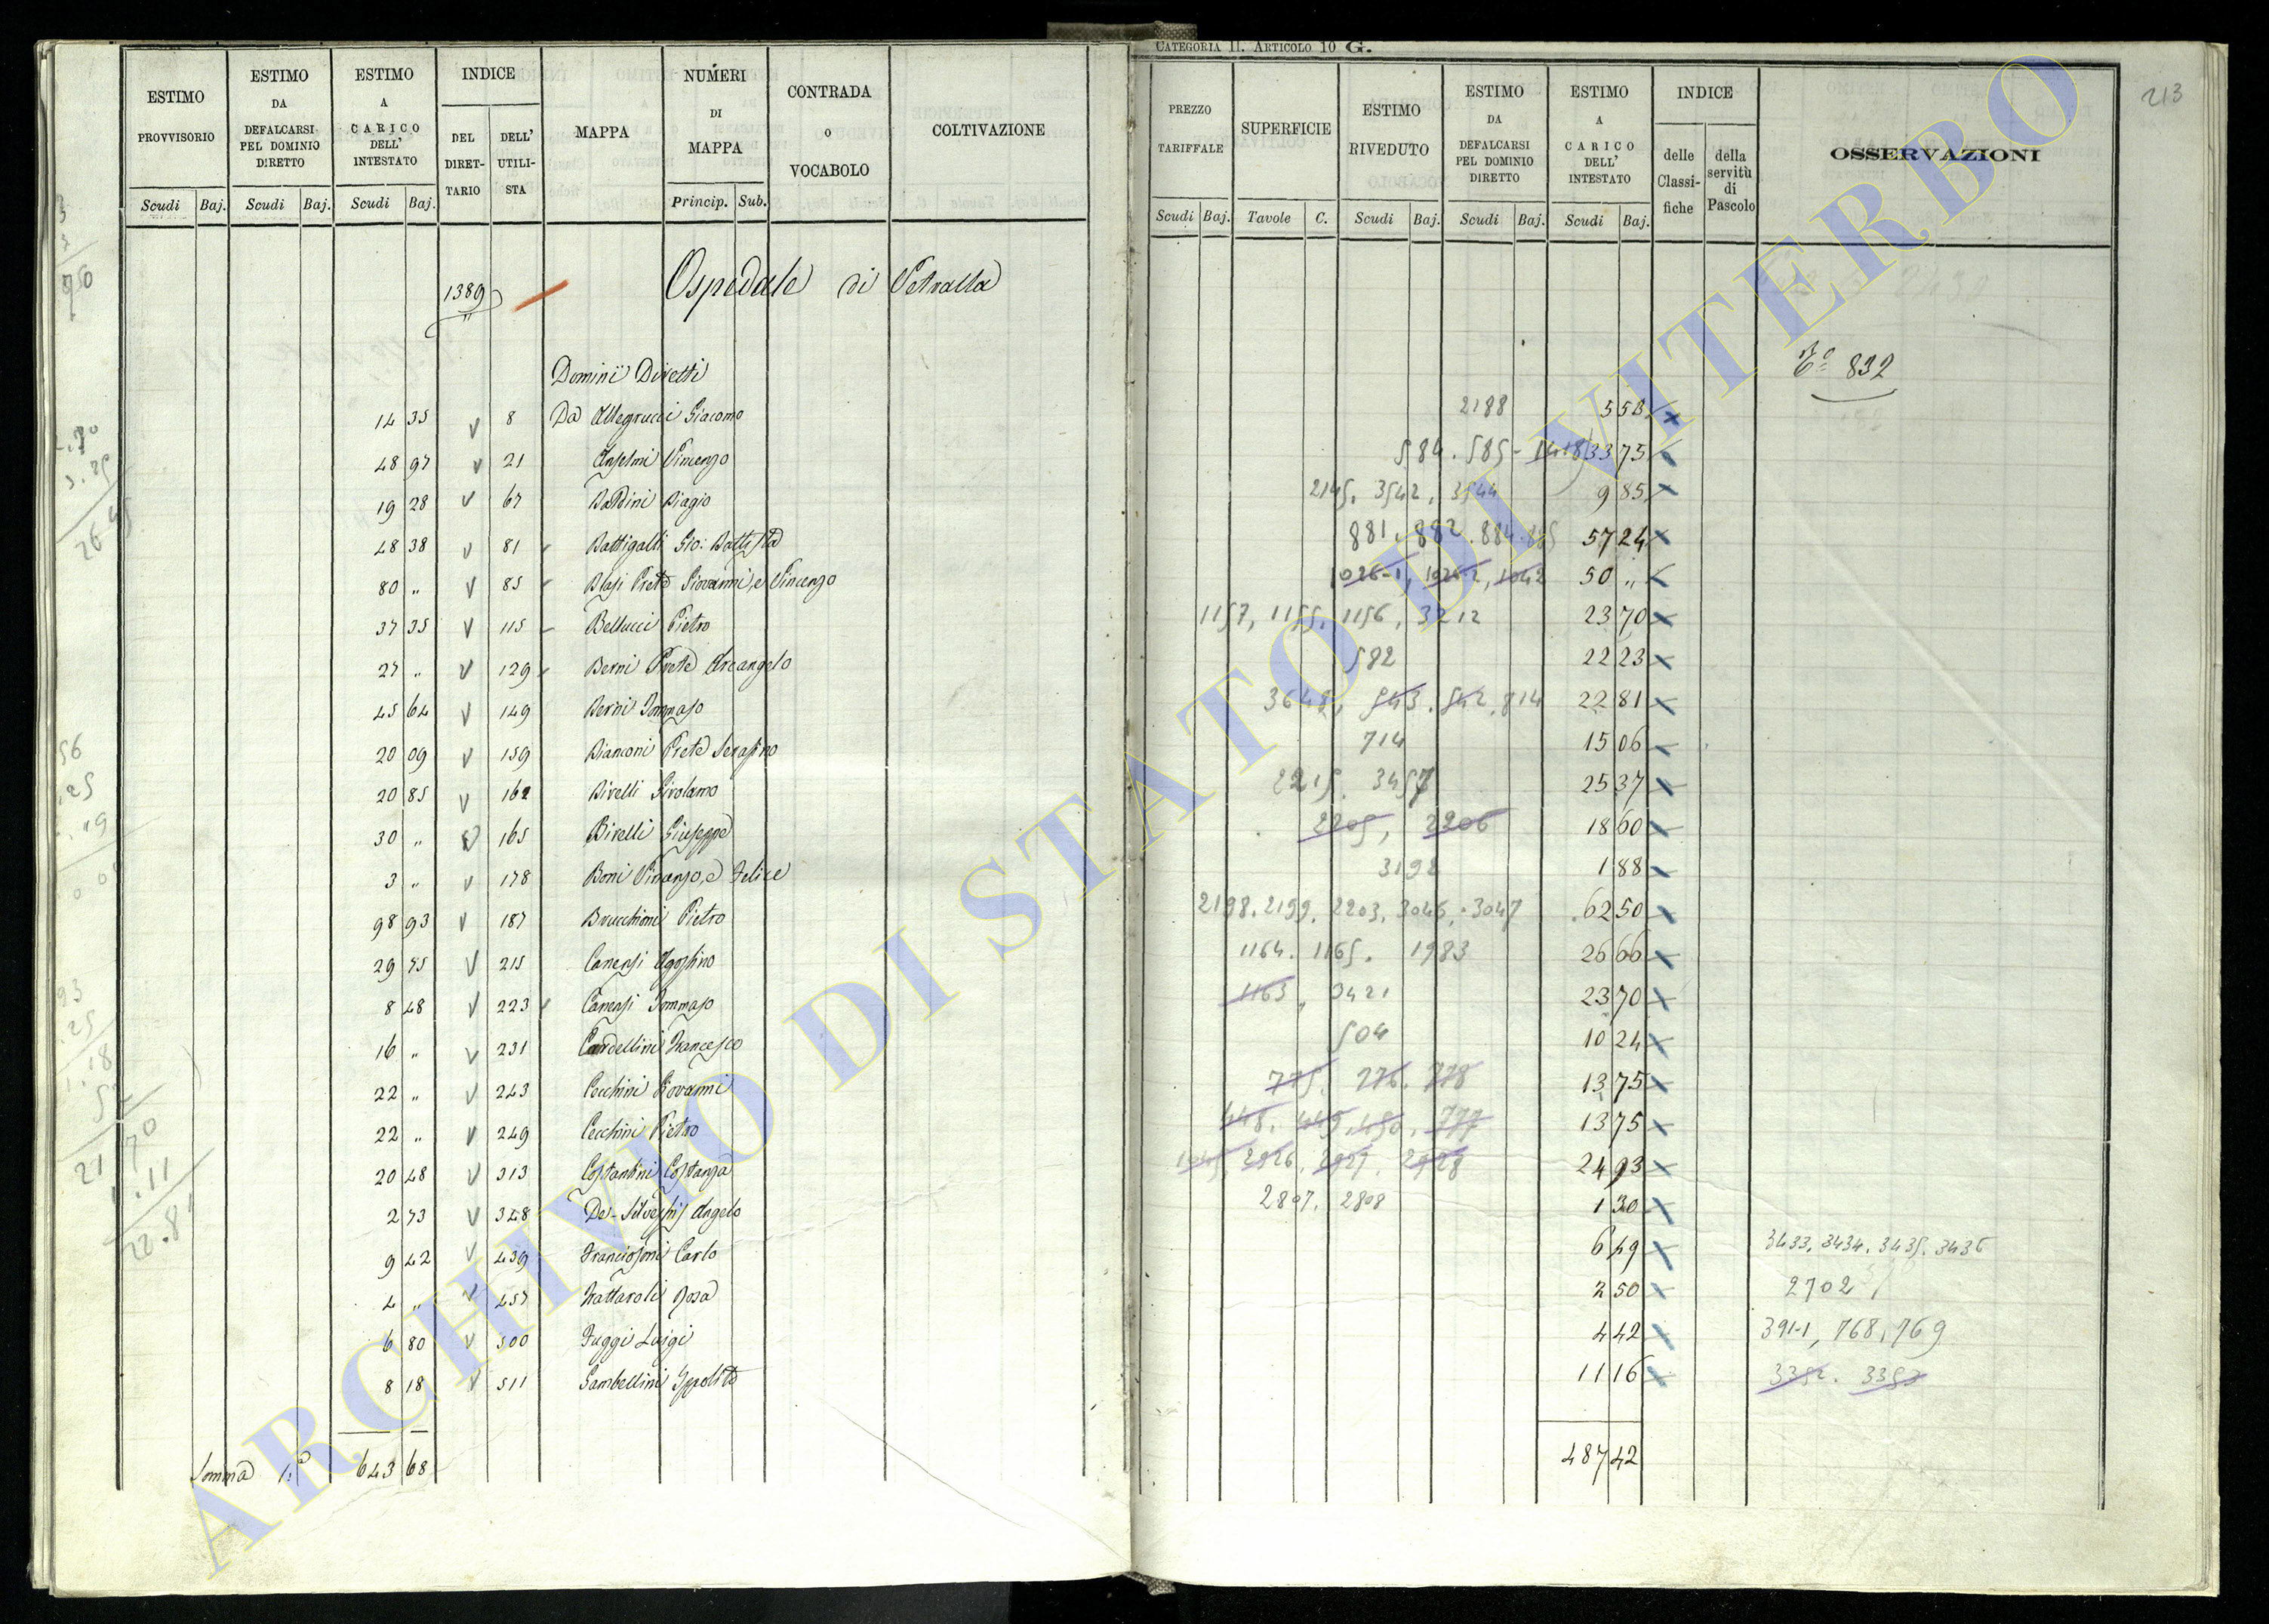 CATEGORIA II. ARTICOLO 10 G.
213
ESTIMO PROVVISORIO
ESTIMO DA DEFALCARSI PEL DOMINIO DIRETTO
ESTIMO A CARICO DELL' INTESTATO
INDICE
DEL DIRETTARIO
DELL' UTILISTA
MAPPA
NUMERI DI MAPPA
CONTRADA o VOCABOLO
COLTIVAZIONE
Scudi Baj. Scudi Baj. Scudi Baj. Princip. Sub.
PREZZO TARIFFALE
SUPERFICIE
ESTIMO RIVEDUTO
ESTIMO DA DEFALCARSI PEL DOMINIO DIRETTO
ESTIMO A CARICO DELL' INTESTATO
INDICE
delle Classifiche
della servitù di Pascolo
OSSERVAZIONI
Scudi Baj. Tavole C. Scudi Baj. Scudi Baj. Scudi Baj.
1389 Ospedale di Vetralla
Dominii Diretti 832
14 35 V 8 Da Allegrucci Giacomo 2188 5 58
48 97 V 21 Anselmi Vincenzo 584. 585 33 75
19 28 V 67 Baldini Biagio 2145. 3542. 3544 9 85
48 38 V 81 Battigalli Gio: Battista 881. 882. 884. 885 57 24
80 " V 85 Blasi Prete Giovanni, e Vincenzo 1026-1, 1026-2, 1042 50 "
37 35 V 115 Bellucci Pietro 1157, 1155, 1156, 3212 23 70
27 " V 129 Berni Prete Arcangelo 582 22 23
45 64 V 149 Berni Tommaso 3648, 543. 542. 814 22 81
20 09 V 159 Bianconi Prete Serafino 714 15 06
20 85 V 162 Birelli Girolamo 2215. 3457 25 37
30 " V 165 Birelli Giuseppe 2205, 2206 18 60
3 " V 178 Boni Vincenzo, e Felice 3192 1 88
98 93 V 187 Brucchioni Pietro 2198. 2199. 2203. 3046. 3047 62 50
29 45 V 215 Canensi Agostino 1164. 1165. 1983 26 66
8 48 V 223 Canensi Tommaso 1163, 3421 23 70
16 " V 231 Cardellini Francesco 504 10 24
22 " V 243 Cecchini Giovanni 775. 776. 778 13 75
22 " V 249 Cecchini Pietro 448. 449. 450. 777 13 75
20 48 V 313 Costantini Costanza 2926. 2927. 2928 24 93
2 73 V 348 De-Silvestris Angelo 2807. 2808 1 30
9 42 V 439 Franciosoni Carlo 6 49 3433. 3434. 3435. 3436
4 " V 457 Frattaroli Rosa 2 50 2702
6 80 V 500 Fuggi Luigi 4 42 391-1, 768, 769
8 18 V 511 Gambellini Ippolito 11 16 3352. 3353
Somma 1.a 643 68 487 42
ARCHIVIO DI STATO DI VITERBO